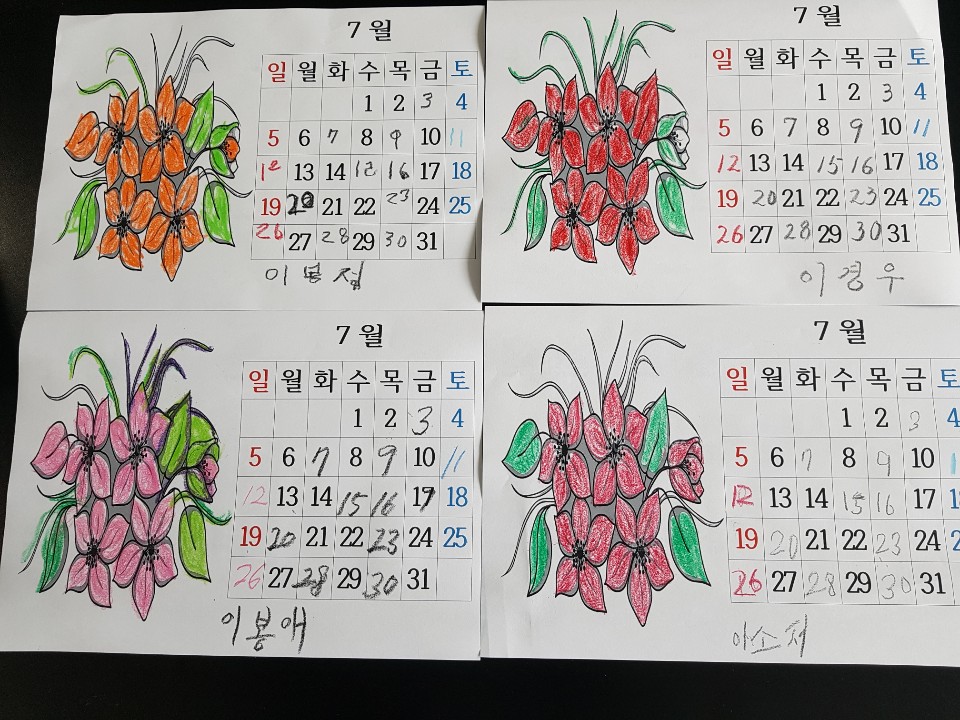 7월
일 월 화 수 목 금 토
1 2 3 4
5 6 7 8 9 10 11
12 13 14 15 16 17 18
19 20 21 22 23 24 25
26 27 28 29 30 31
이
7월
일 월 화 수 목 금 토
1 2 3 4
5 6 7 8 9 10 11
12 13 14 15 16 17 18
19 20 21 22 23 24 25
26 27 28 29 30 31
이경우
7월
일 월 화 수 목 금 토
1 2 3 4
5 6 7 8 9 10 11
12 13 14 15 16 17 18
19 20 21 22 23 24 25
26 27 28 29 30 31
이봉애
7월
일 월 화 수 목 금 토
1 2 3 4
5 6 7 8 9 10 1
12 13 14 15 16 17 1
19 20 21 22 23 24 2
26 27 28 29 30 31